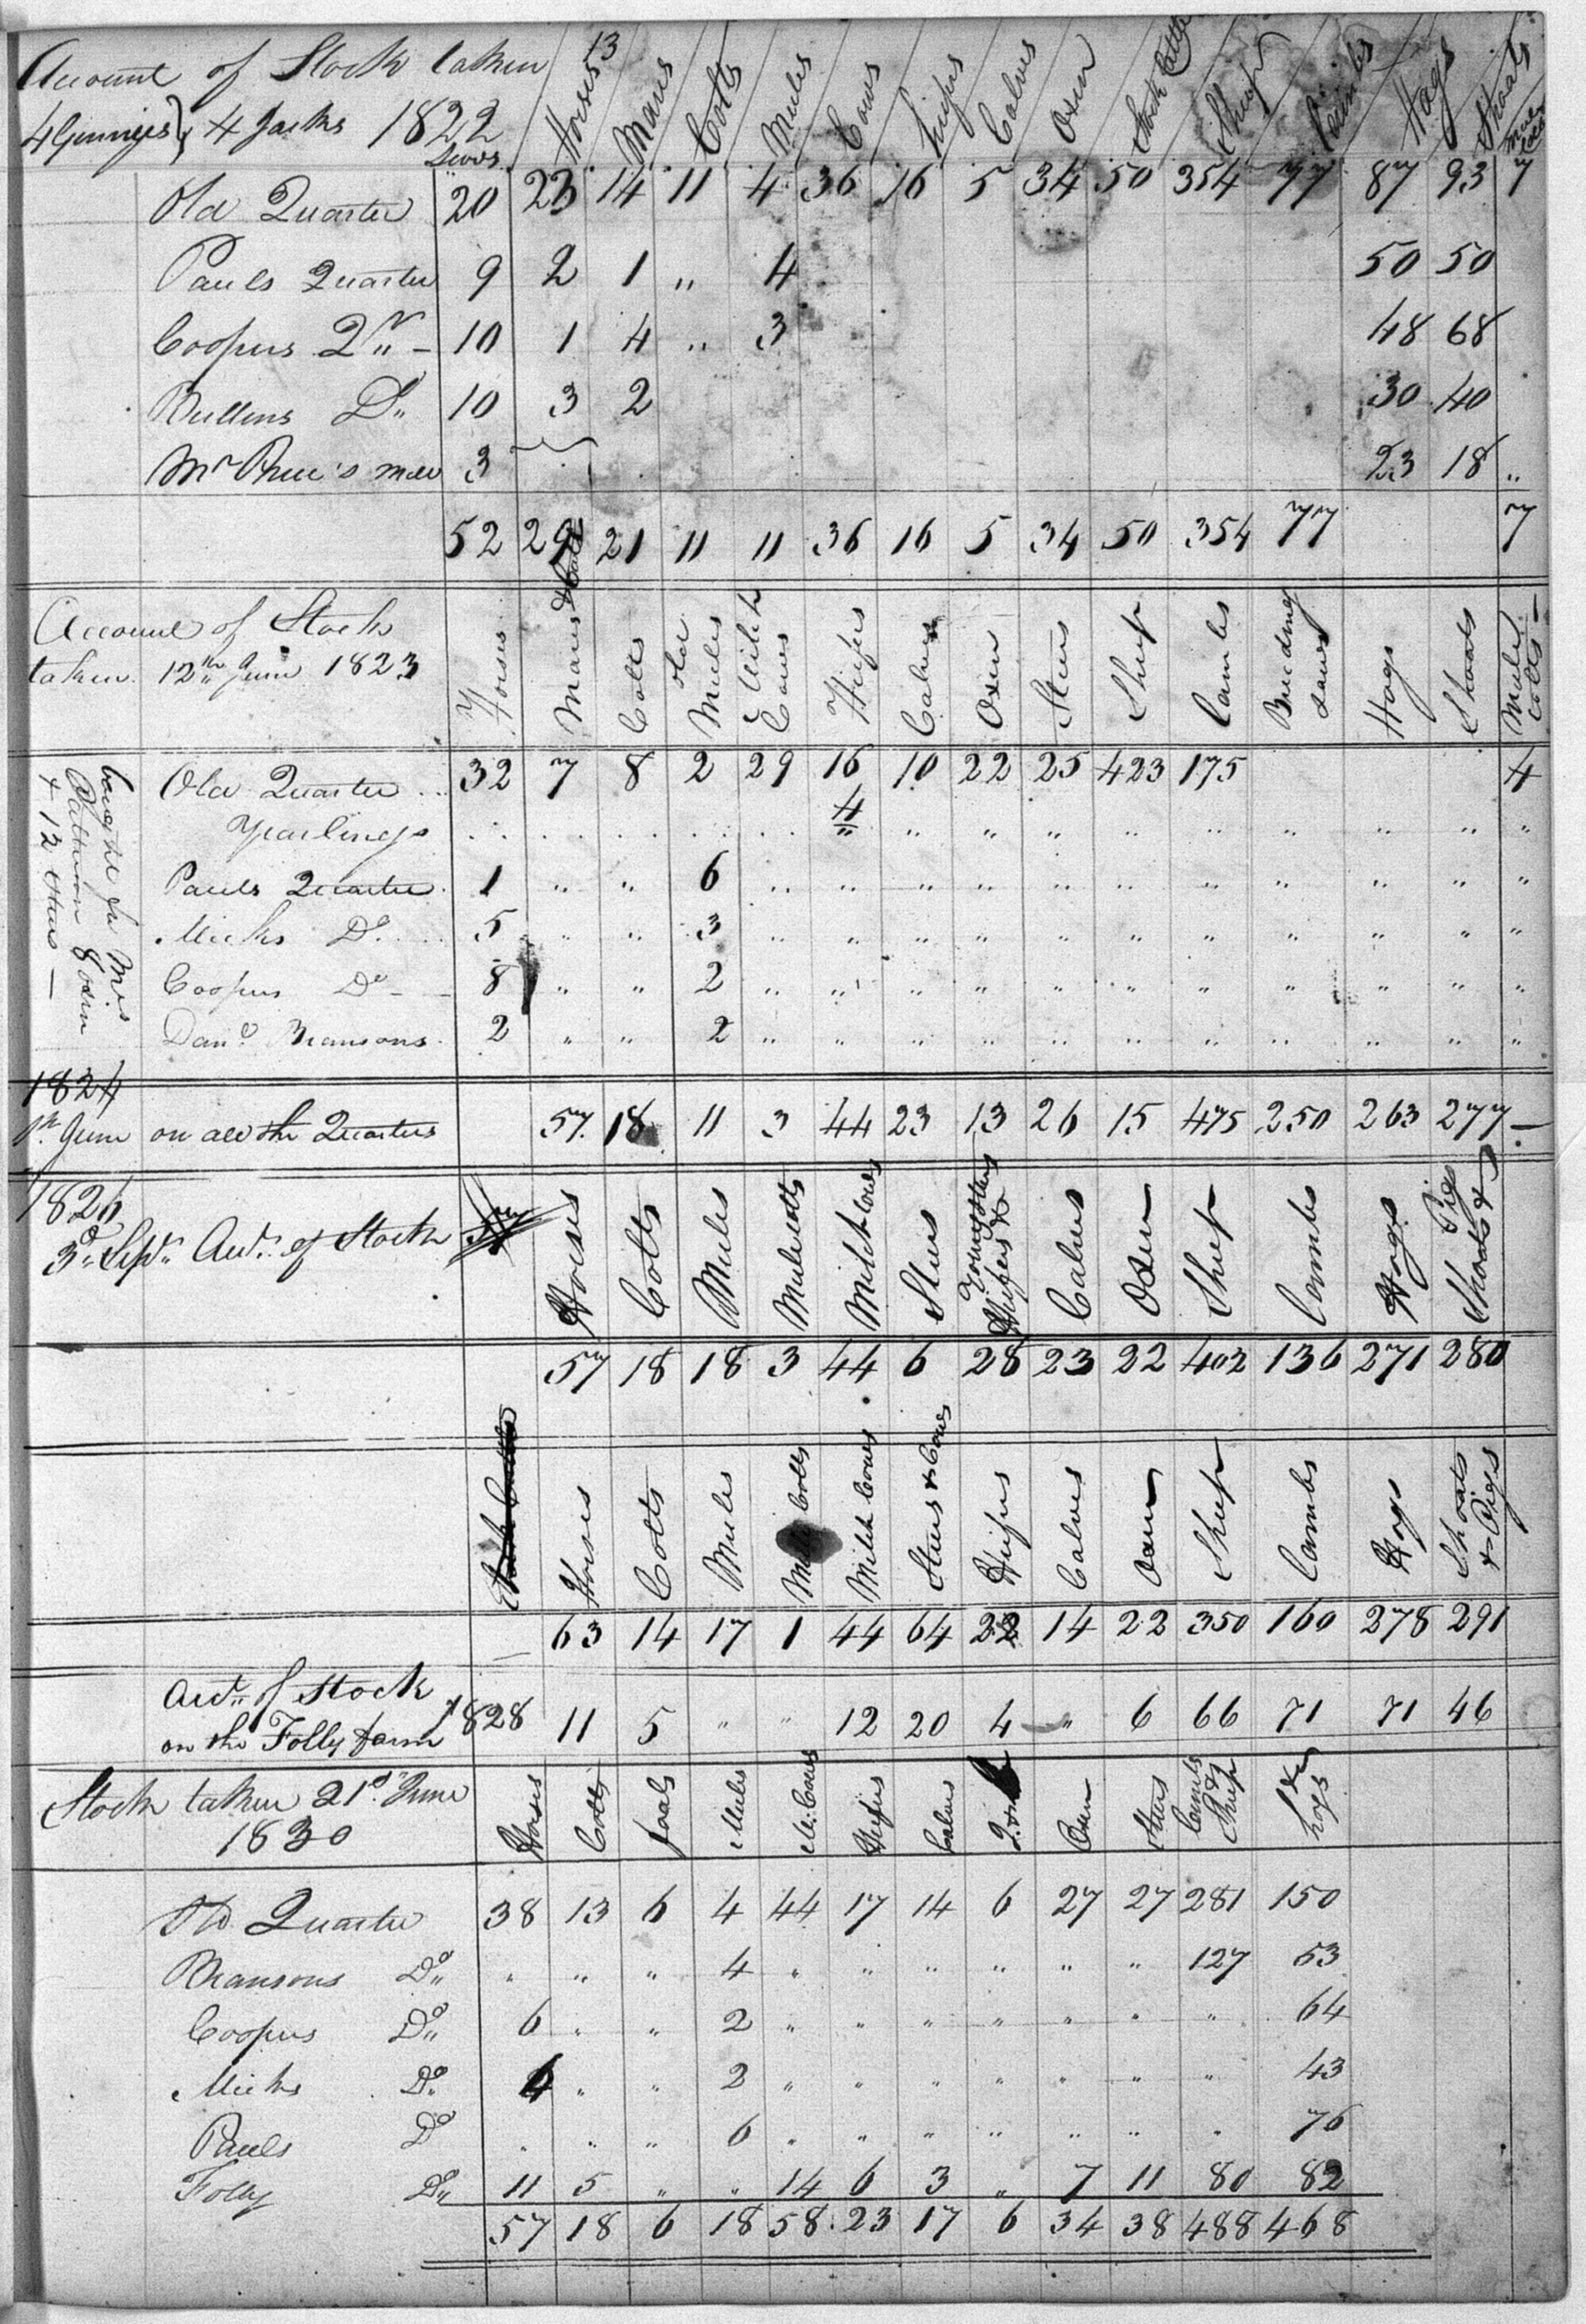 Account of Stock taken
4 Jinneys } 4 Jacks 1822
Sows Horses 13 Mares Colts Mules Cows Heifers Calves Oxen Stock Cattle Sheep Lambs Hogs Shoats Mule Colts
Old Quarter 20 23 14 11 4 36 16 5 34 50 354 77 87 93 7
Pauls Quarter 9 2 1 " 4 50 50
Coopers Qr " - 10 1 4 " 3 48 68
Bullens Do " 10 3 2 30 40
Mr mill 3 23 18 "
52 29 21 11 11 36 16 5 34 50 354 77 7
Account of Stock
taken 12th June 1823
Horses Mares & Colts Colts Old Mules Milch Cows Heifers Calves Oxen Steers Sheep Lambs Breeding Sows Hogs Shoats Mule Colts -
Old Quarter 32 7 8 2 29 16 10 22 25 423 175 4
Yearlings 4 " " " " " " " " " "
Pauls Quarter 1 " " 6 " " " " " " " " " " "
Meeks Do 5 " " 3 " " " " " " " " " " "
Coopers Do - - 8 " " 2 " " " " " " " " " " "
Danl Bransons 2 " " 2 " " " " " " " " " " "
bought for Mrs
Patterson 8 oxen
& 12 steers —
1824
1st June on all the Quarters 57 18 11 3 44 23 13 26 15 475 250 263 277 -
1826
3d Septr Acct of Stock
Horses Colts Mules Mule colts Milch Cows Steers Young Steers & Heifers Calves Oxen Sheep Lambs Hogs Shoats & Pigs
57 18 18 3 44 6 28 23 22 402 136 271 280
Stock Cattle Horses Colts Mules Mule Colts Milch Cows Steers & Cows Heifers Calves Oxen Sheep Lambs Hogs Shoats & Pigs
63 14 17 1 44 64 22 14 22 350 160 278 291
Acct of Stock
on the Folly farm 1828 11 5 " " 12 20 4 " 6 66 71 71 46
Stock taken 21st June
1830
Horses Colts foals Mules M. Cows Heifers Calves Oxen Steers Lambs & Sheep Hogs
Old Quarter 38 13 6 4 44 17 14 6 27 27 281 150
Bransons Do " " " " 4 " " " " " " 127 53
Coopers Do " 6 " " 2 " " " " " " " 64
Meeks Do 4 " " 2 " " " " " " " 43
Pauls Do " " " 6 " " " " " " " 76
Folly Do " 11 5 " " 14 6 3 " 7 11 80 82
57 18 6 18 58 23 17 6 34 38 488 468